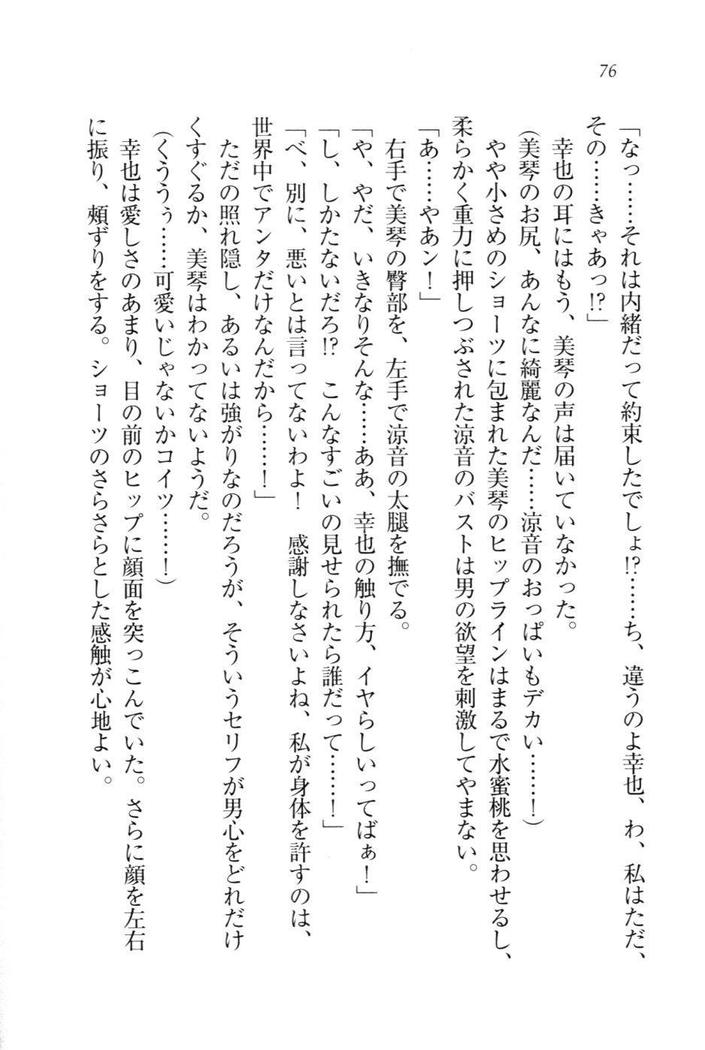 76
「なっ……それは内緒だって約束したでしょ!?……ち、違うのよ幸也、わ、私はただ、
その……きゃあっ!?」
幸也の耳にはもう、美琴の声は届いていなかった。
(美琴のお尻、あんなに綺麗なんだ……涼音のおっぱいもデカい……!)
やや小さめのショーツに包まれた美琴のヒップラインはまるで水蜜桃を思わせるし、
柔らかく重力に押しつぶされた涼音のバストは男の欲望を刺激してやまない。
「あ……やあン!」
右手で美琴の臀部を、左手で涼音の太腿を撫でる。
「や、やだ、いきなりそんな……ああ、幸也の触り方、イヤらしいってばぁ!」
「し、しかたないだろ!? こんなすごいの見せられたら誰だって……!」
「べ、別に、悪いとは言ってないわよ! 感謝しなさいよね、私が身体を許すのは、
世界中でアンタだけなんだから……!」
ただの照れ隠し、あるいは強がりなのだろうが、そういうセリフが男心をどれだけ
くすぐるか、美琴はわかってないようだ。
(くううぅ……可愛いじゃないかコイツ……!)
幸也は愛しさのあまり、目の前のヒップに顔面を突っこんでいた。さらに顔を左右
に振り、頬ずりをする。ショーツのさらさらとした感触が心地よい。